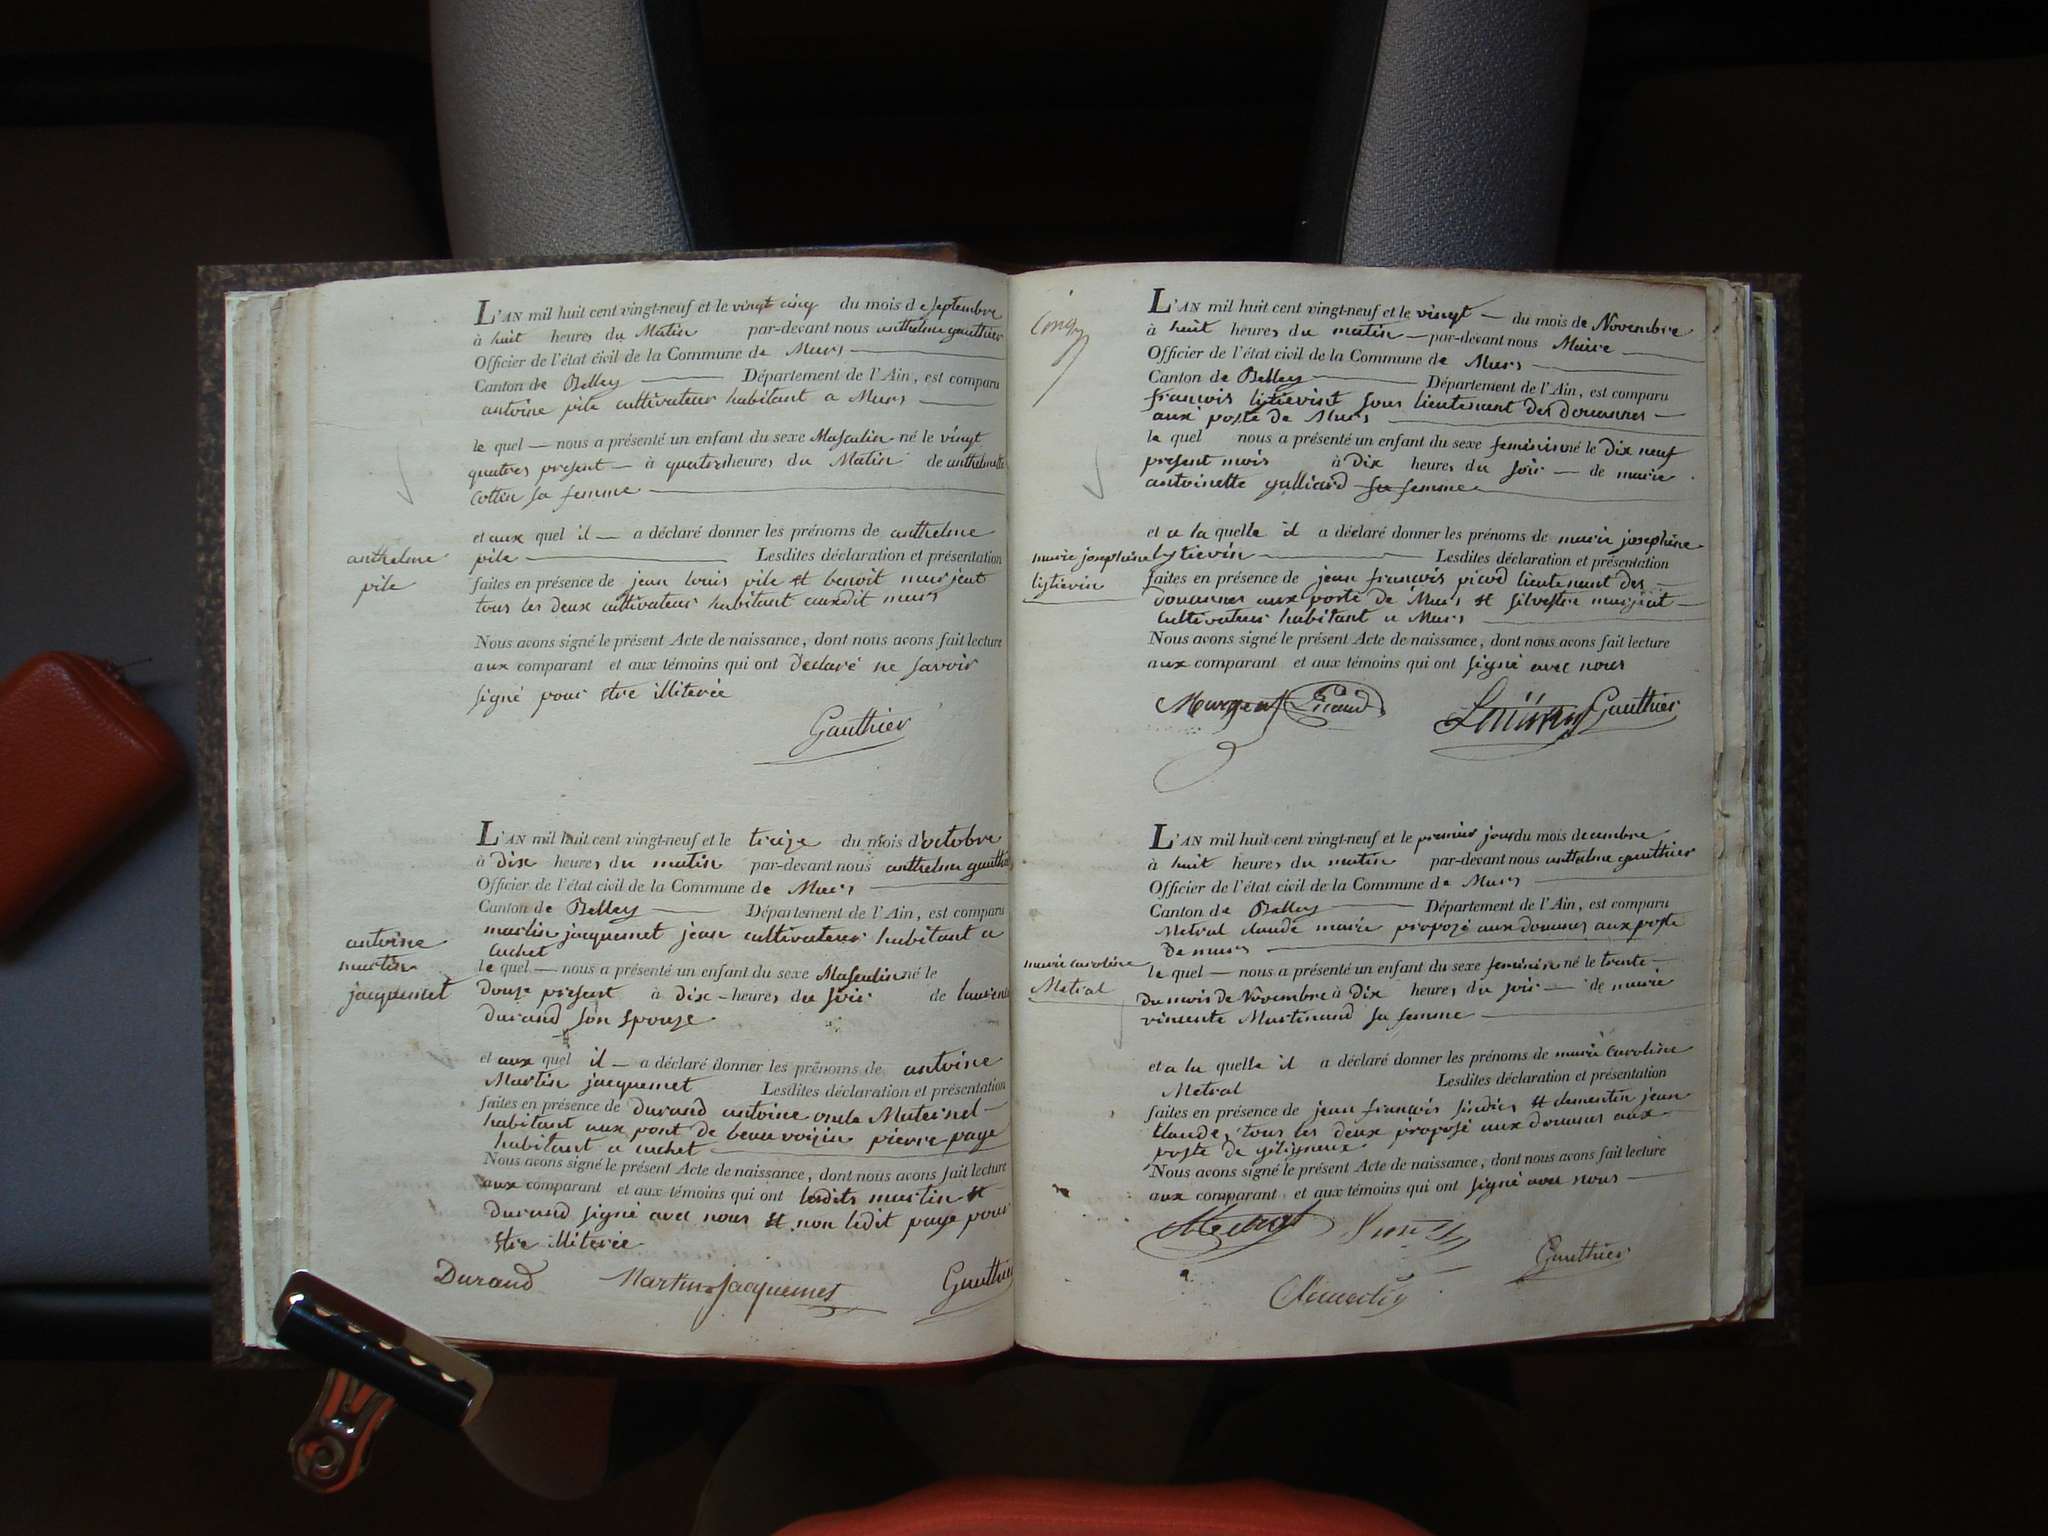 L'AN mil huit cent vingt-neuf et le vingt cinq du mois de septembre
à huit heures du Matin par-devant nous anthelme gauthier
Officier de l'état civil de la Commune de Murs
Canton de Belley Département de l'Ain, est comparu
antoine pile cultivateur habitant a Murs
le quel nous a présenté un enfant du sexe Masculin né le vingt
quatres present à quatres heures du Matin de anthelmette
Cottin sa femme
et aux quel il a déclaré donner les prénoms de anthelme
pile Lesdites déclaration et présentation
faites en présence de jean louis pile et benoit murjeat
tous les deux cultivateur habitant auxdit murs
Nous avons signé le présent Acte de naissance, dont nous avons fait lecture
aux comparant et aux témoins qui ont Declaré ne savoir
signé pour etre illiterée
Gauthier
anthelme
pile
L'AN mil huit cent vingt-neuf et le treize du mois d'octobre
à Dix heures du matin par-devant nous anthelme gauthier
Officier de l'état civil de la Commune de Murs
Canton de Belley Département de l'Ain, est comparu
martin jacquemet jean cultivateur habitant a
Cuchet
le quel nous a présenté un enfant du sexe Masculin né le
Douze present à Dix heures du soir de
Durand son epouze
et aux quel il a déclaré donner les prénoms de antoine
Martin jacquemet Lesdites déclaration et présentation
faites en présence de Durand antoine oncle Maternel
habitant aux pont de beauvoisin pierre page
habitant a cuchet
Nous avons signé le présent Acte de naissance, dont nous avons fait lecture
aux comparant et aux témoins qui ont lesdits martin et
Durand signé avec nous et non ledit page pour
etre illiterée
Durand Martin Jacquemet Gauthier
antoine
martin
jacquemet
L'AN mil huit cent vingt-neuf et le vingt du mois de Novembre
à huit heures du matin par-devant nous Maire
Officier de l'état civil de la Commune de Murs
Canton de Belley Département de l'Ain, est comparu
francois sous lieutenant des douannes
aux poste de Murs
le quel nous a présenté un enfant du sexe feminin né le Dix neuf
present mois à Dix heures du soir de marie
antoinette galliard sa femme
et a la quelle il a déclaré donner les prénoms de marie josephine
Lesdites déclaration et présentation
faites en présence de jean francois picard lieutenant des
Douannes aux poste de Murs et silvestre murjeat
Cultivateur habitant a Murs
Nous avons signé le présent Acte de naissance, dont nous avons fait lecture
aux comparant et aux témoins qui ont signé avec nous
Murgeat Picard Gauthier
marie josephine
L'AN mil huit cent vingt-neuf et le premier jour du mois decembre
à huit heures du matin par-devant nous anthelme gauthier
Officier de l'état civil de la Commune de Murs
Canton de Belley Département de l'Ain, est comparu
Metral claude marie propozé aux douanes aux poste
De murs
le quel nous a présenté un enfant du sexe feminin né le trente
Du mois de Novembre à Dix heures du soir de marie
vincente Martinand sa femme
et a la quelle il a déclaré donner les prénoms de marie Caroline
Metral Lesdites déclaration et présentation
faites en présence de jean francois et clementin jean
Claude, tous les deux propozé aux douanes aux
poste de
Nous avons signé le présent Acte de naissance, dont nous avons fait lecture
aux comparant et aux témoins qui ont signé avec nous
Metral Gauthier
Clementin
marie Caroline
Metral